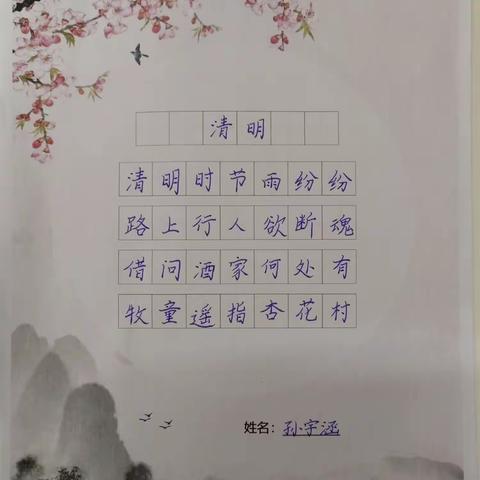 清明
清明时节雨纷纷
路上行人欲断魂
借问酒家何处有
牧童遥指杏花村
姓名：孙宇涵